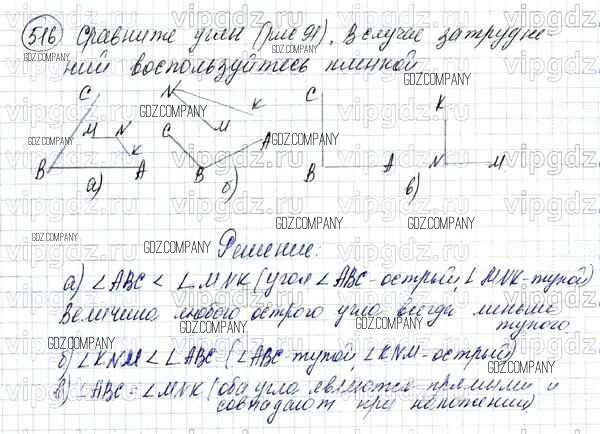 516 Сравните углы (рис 91). В случае затрудне-
ний воспользуйтесь пленкой
C N K C K
M N C M A
K
B A B B A N M
а) б) в)
Решение:
а) ∠ABC < ∠MNK (угол ∠ABC-острый, ∠MNK-тупой)
Величина любого острого угла всегда меньше
тупого
б) ∠KNM < ∠ABC (∠ABC-тупой, ∠KNM-острый)
в) ∠ABC = ∠MNK (оба угла являются прямыми и
совпадают при наложении)
GDZ.COMPANY
vipgdz.ru